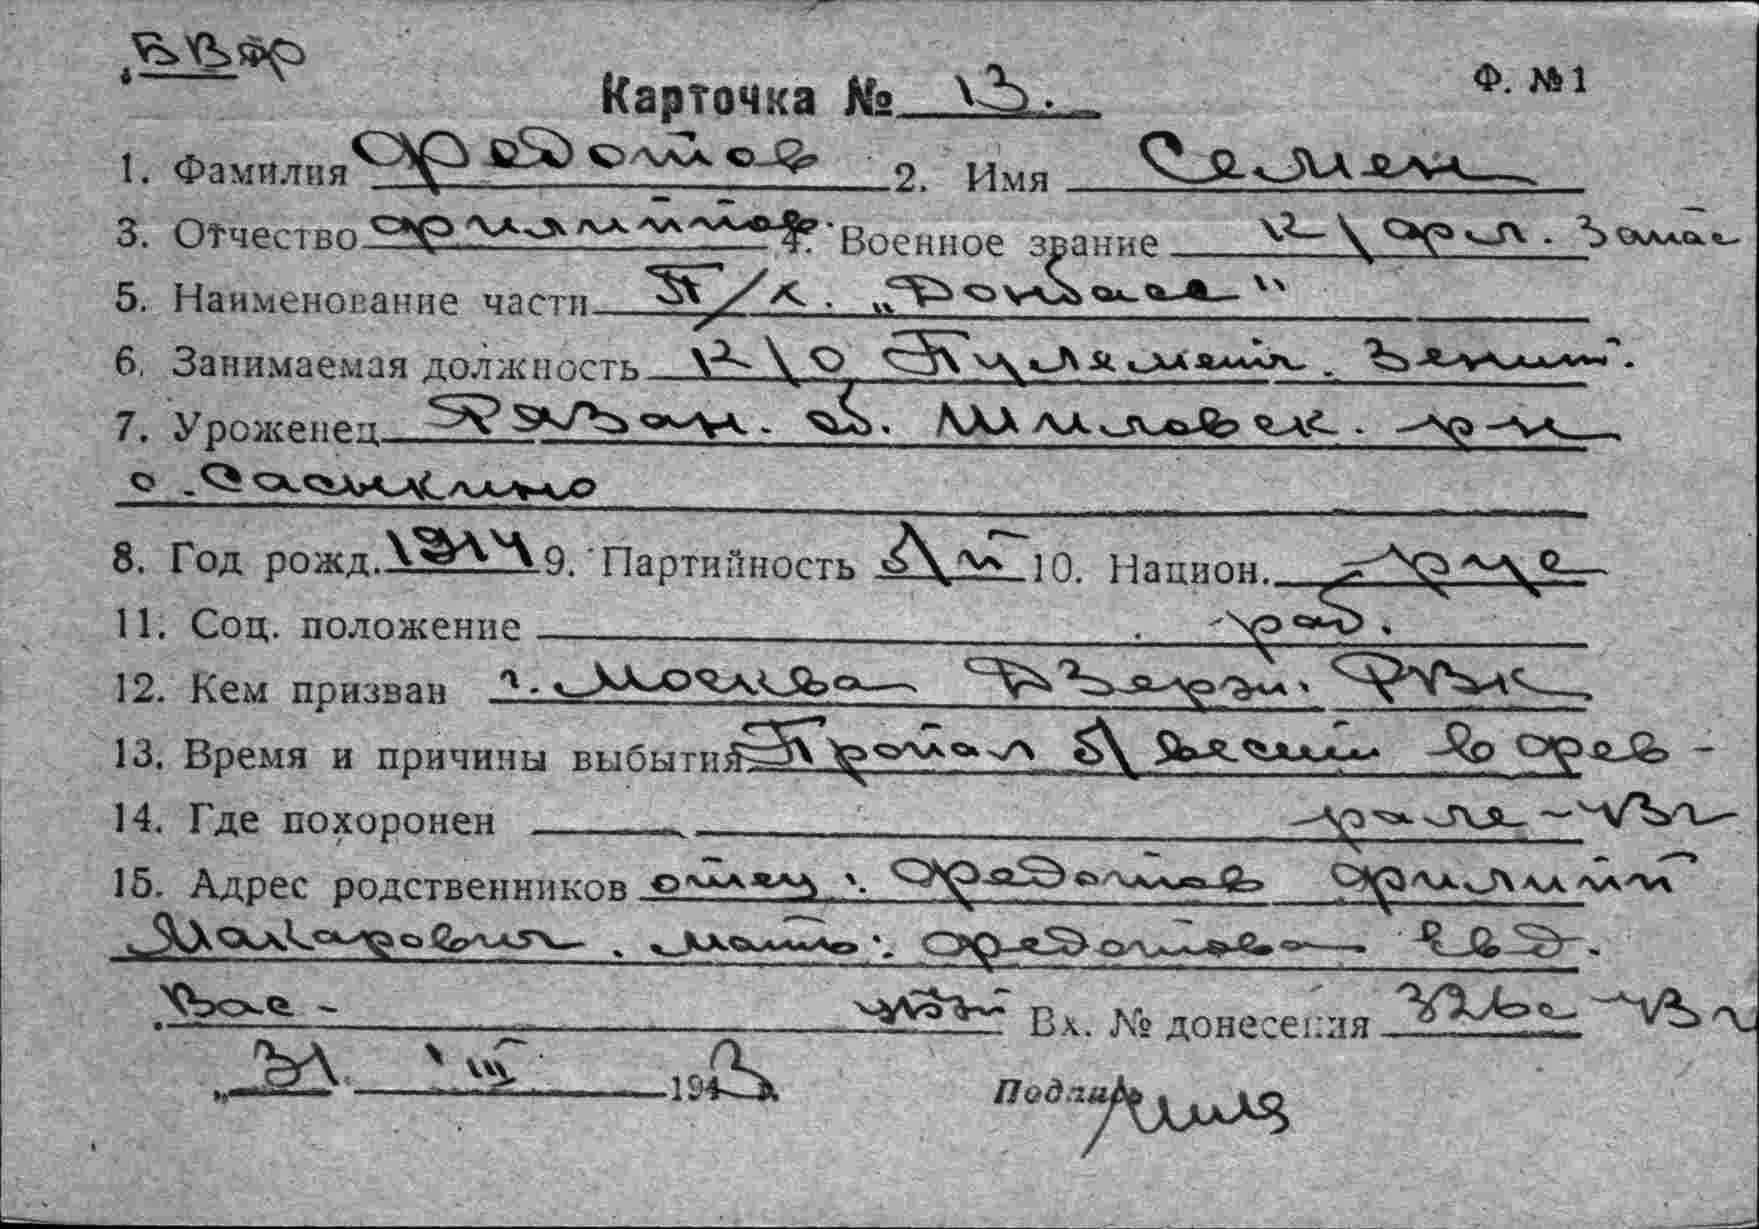 БВФ
Карточка № 13. Ф. №1
1. Фамилия Федотов 2. Имя Семен
3. Отчество Филиппов. 4. Военное звание к\фл. Запас
5. Наименование части П/х. „Донбасс"
6. Занимаемая должность к\о Пулеметч. Зенит.
7. Уроженец Рязан. об. Шиловск. р-н
с. Сасыкино
8. Год рожд. 1914 9. Партийность б\п 10. Национ. рус
11. Соц. положение раб.
12. Кем призван г. Москва Дзерж. РВК
13. Время и причины выбытия Пропал б\вести в фев-
14. Где похоронен рале-43г
15. Адрес родственников отец: Федотов Филипп
Макарович. мать: Федотова Евд.
Вас- Вх. № донесения 326с 43г
„31 III 1943
Подпись